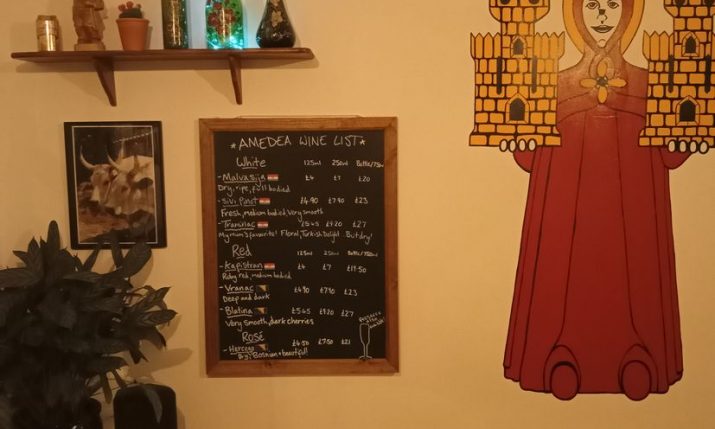 * AMEDEA WINE LIST *
White 125ml 250ml Bottle/75cl
- Malvasija £4 £7 £20
Dry, ripe, full bodied
- Sivi Pinot £4.90 £7.90 £23
Fresh, medium bodied, very smooth
- Traminac £5.45 £9.20 £27
My mum's favourite! Floral, Turkish Delight. But dry!
Red 125ml 250ml Bottle/750ml
- Kapistran £4 £7 £19.50
Ruby red, medium bodied
- Vranac £4.90 £7.90 £23
Deep and dark
- Blatina £5.45 £9.20 £27
Very smooth, dark cherries
Rosé
- Hercego £4.50 £7.50 £21
Big, Bosnian + beautiful!
Prosecco
also